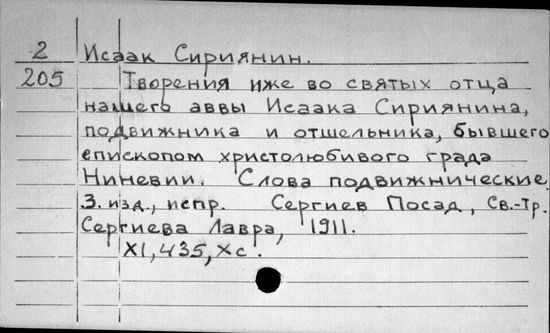 2 Исаак Сириянин.
205 Творения иже во святых отца
нашего аввы Исаака Сириянина,
подвижника и отшельника, бывшего
епископом христолюбивого града
Ниневии. Слова подвижнические.
3. изд., испр. Сергиев Посад, Св.-Тр.
Сергиева Лавра, 1911.
XI, 435, Xс.